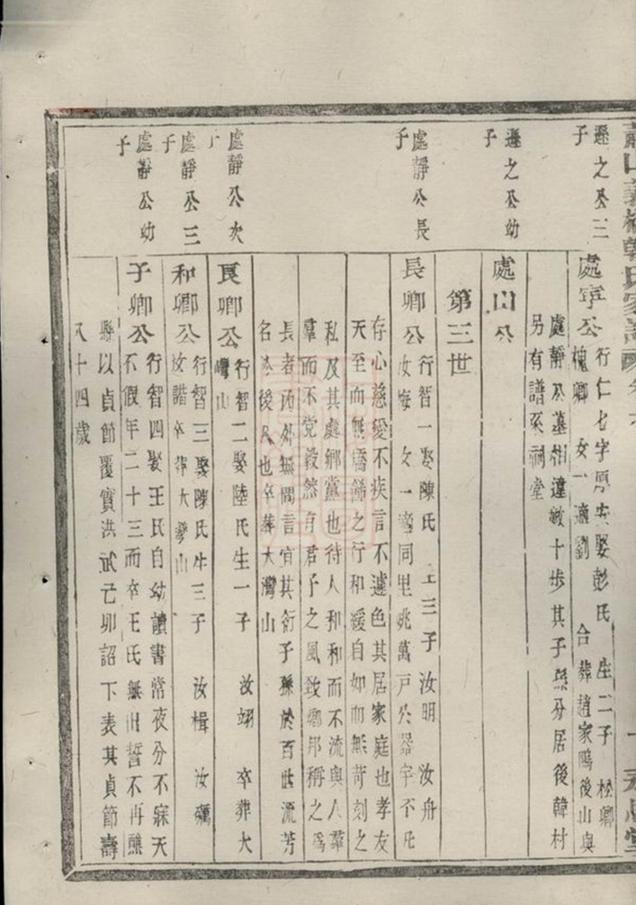 遜之公三
子
處寧公
行仁七字原安娶彭氏 生二子 松卿
槐卿 女一適劉 合葬趙家鴎後山與
處靜公墓相違數十步其子孫分居後韓村
另有譜系祠堂
遜之公幼
子
處山公
第三世
處靜公長
子
長卿公
行智一娶陳氏 生三子汝明 汝舟
汝梅 女一適同里姚萬戶公器宇不凡
存心慈愛不疾言不遽色其居家庭也孝友
天至而無矯飾之行和緩自如而無苛刻之
私及其處鄉黨也待人和和而不流與人羣
羣而不党毅然有君子之風致鄉邦稱之為
長者內外無間言宜其衍子孫於百世流芳
名於後人也卒葬大灣山
處靜公次
良卿公
行智二娶陸氏生一子 汝翊 卒葬大
灣山
處靜公三
子
和卿公
行智三娶陳氏生三子 汝楫 汝礪
汝諧卒葬大灣山
處靜公幼
子
子卿公
行智四娶王氏自幼讀書常夜分不寐天
不假年二十三而卒王氏無出誓不再醮
縣以貞節覆實洪武己卯詔下表其貞節壽
八十四歲